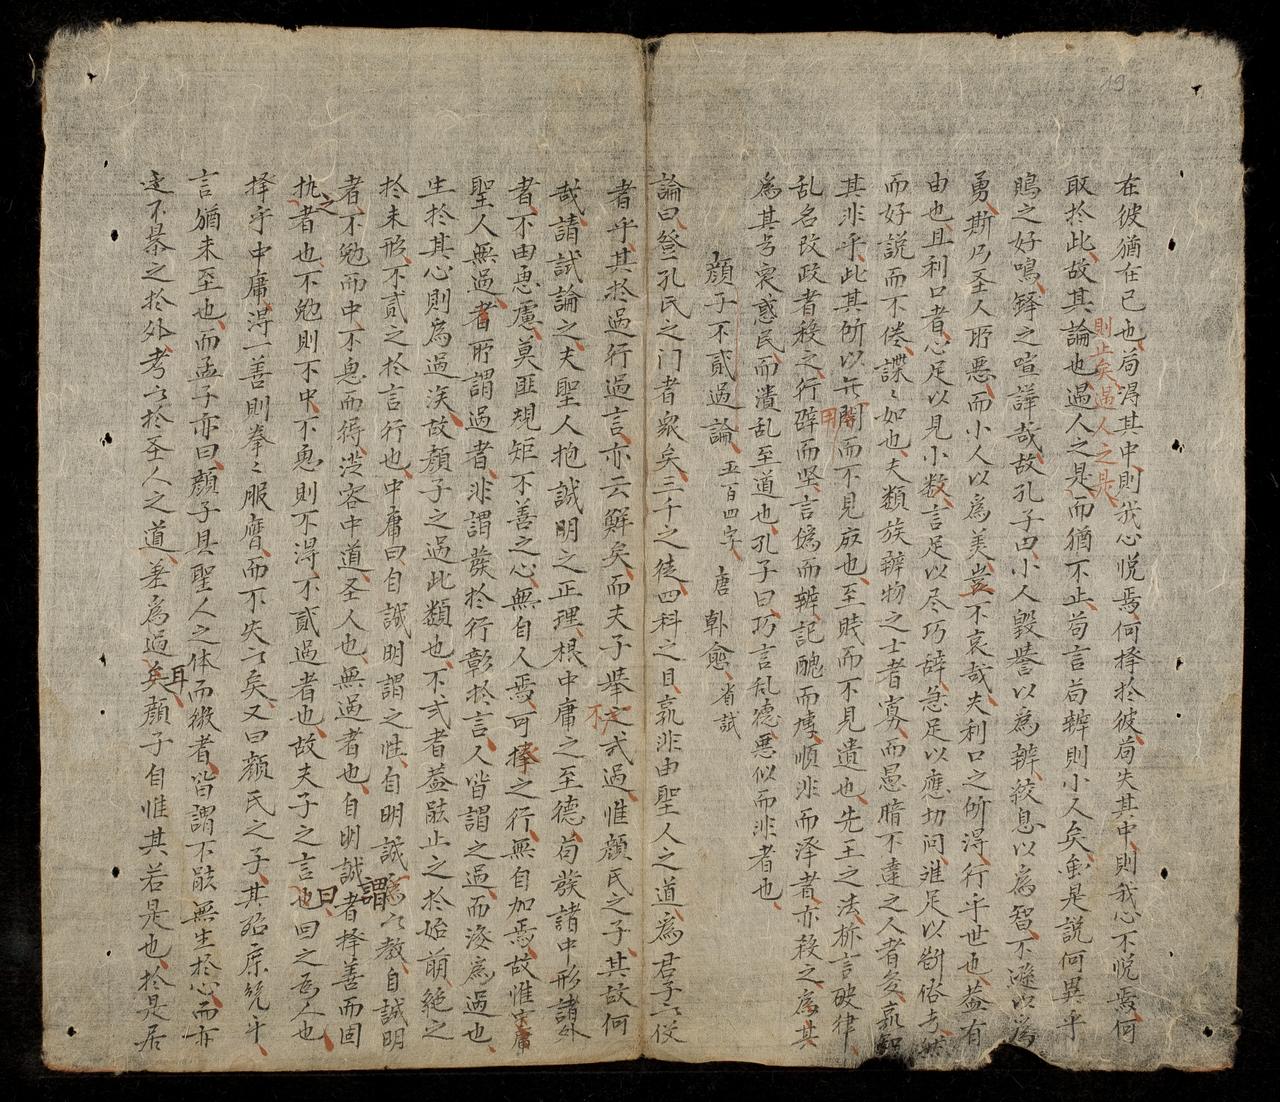 19
在彼猶在已也、苟淂其中、則我心悅焉、何择於彼、苟失其中、則我心不悅焉、何
則止矣、過人之是
取於此、故其論也過人之是、而猶不止、苟言苟辨則小人矣、虽是說何異乎
鵙之好鳴、鐸之喧譁哉、故孔子曰、小人毀誉以為辨、狡急以為智、不遜以為
勇、斯乃圣人所惡、而小人以為美、豈不哀哉、夫利口之所淂、行乎世也、盖有
由也、且利口者、心足以見小数、言足以尽巧辞、急足以應切问、進足以断俗
而好說而不倦、諜〻如也、夫類族辨物之士者寡、而愚暗不達之人者多、孰知
其非乎、此其所以無用而不見廢也、至賎而不見遺也、先王之法、析言破律、
乱名改政者殺之、行僻而坚、言偽而辨、記醜而博、順非而泽者、亦殺之、為其
為其亏衆惑民、而潰乱至道也、孔子曰、巧言乱德、悪似而非者也、
顔子不貳過論、五百四字、唐 韓愈、省試
論曰、登孔氏之门者衆矣、三千之徒、四科之目、孰非由聖人之道、為君子之從
者乎、其於過行過言、亦云鮮矣、而夫子举不弍過惟顔氏之子、其故何
哉、請試論之、夫聖人抱誠明之正理、根中庸之至德、苟發諸中形諸外
者、不由思慮、莫匪規矩、不善之心、無自人焉、可擇之行、無自加焉、故惟
聖人無過、者所謂過者、非謂發於行、彰於言、人皆謂之過、而後為過也、
生於其心則為過矣、故顔子之過此類也、不弍者、葢能止之於始萌、絶之
於未形、不貳之於言行也、中庸曰、自誠明謂之性、自明誠謂之教、自誠明
者、不勉而中、不思而得、從容中道、圣人也、無過者也、自明誠者、择善而固
执之者也、不勉則不中、不思則不淂、不貳過者也、故夫子之言曰、回之為人也、
择乎中庸、淂一善則拳〻服膺、而不失之矣、又曰顔氏之子、其殆庶幾乎
言猶未至也、而孟子亦曰、顔子具聖人之体而微者、皆謂不能無生於心、而亦
不暴之於外、考之於圣人之道、差為過耳、顔子自惟其若是也、於是居